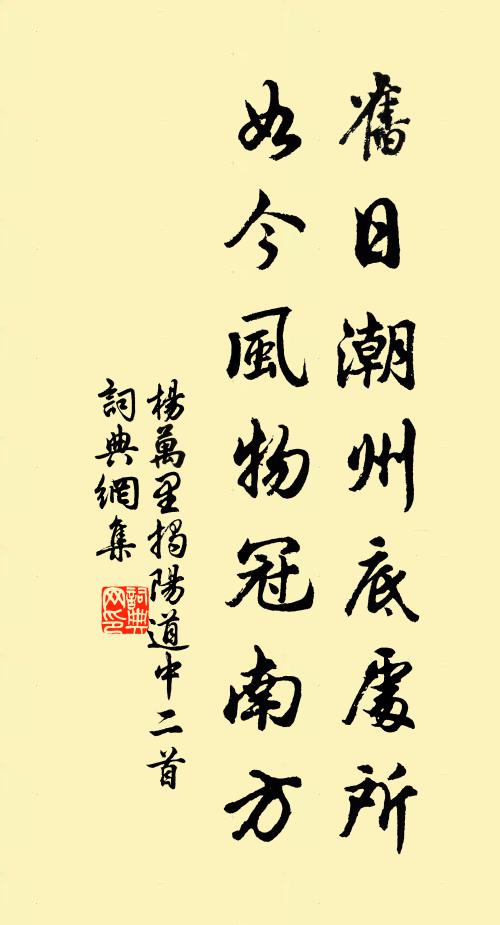 舊日潮州底處所
如今風物冠南方
楊萬里揭陽道中二首
詞典網集
詞典网印